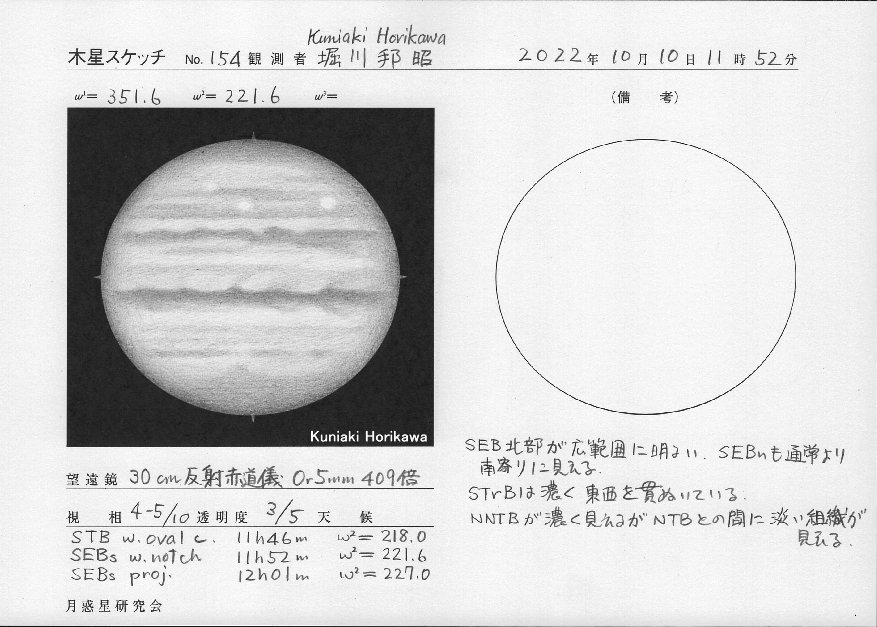 Kuniaki Horikawa
木星スケッチ No. 154 観測者 堀川邦昭 2022年10月10日11時52分
ω¹= 351.6 ω²= 221.6 ω³=
(備 考)
Kuniaki Horikawa
SEB北部が広範囲に明るい. SEBnも通常より
南寄りに見える.
STrBは濃く東西を貫ぬいている.
NNTBが濃く見えるがNTBとの間に淡い組織が
見える.
望遠鏡 30cm反射赤道儀 Or5mm 409倍
視 相 4-5/10 透明度 3/5 天 候
STB w.oval c. 11h46m ω²= 218.0
SEBs w.notch 11h52m ω²= 221.6
SEBs proj. 12h01m ω²= 227.0
月惑星研究会